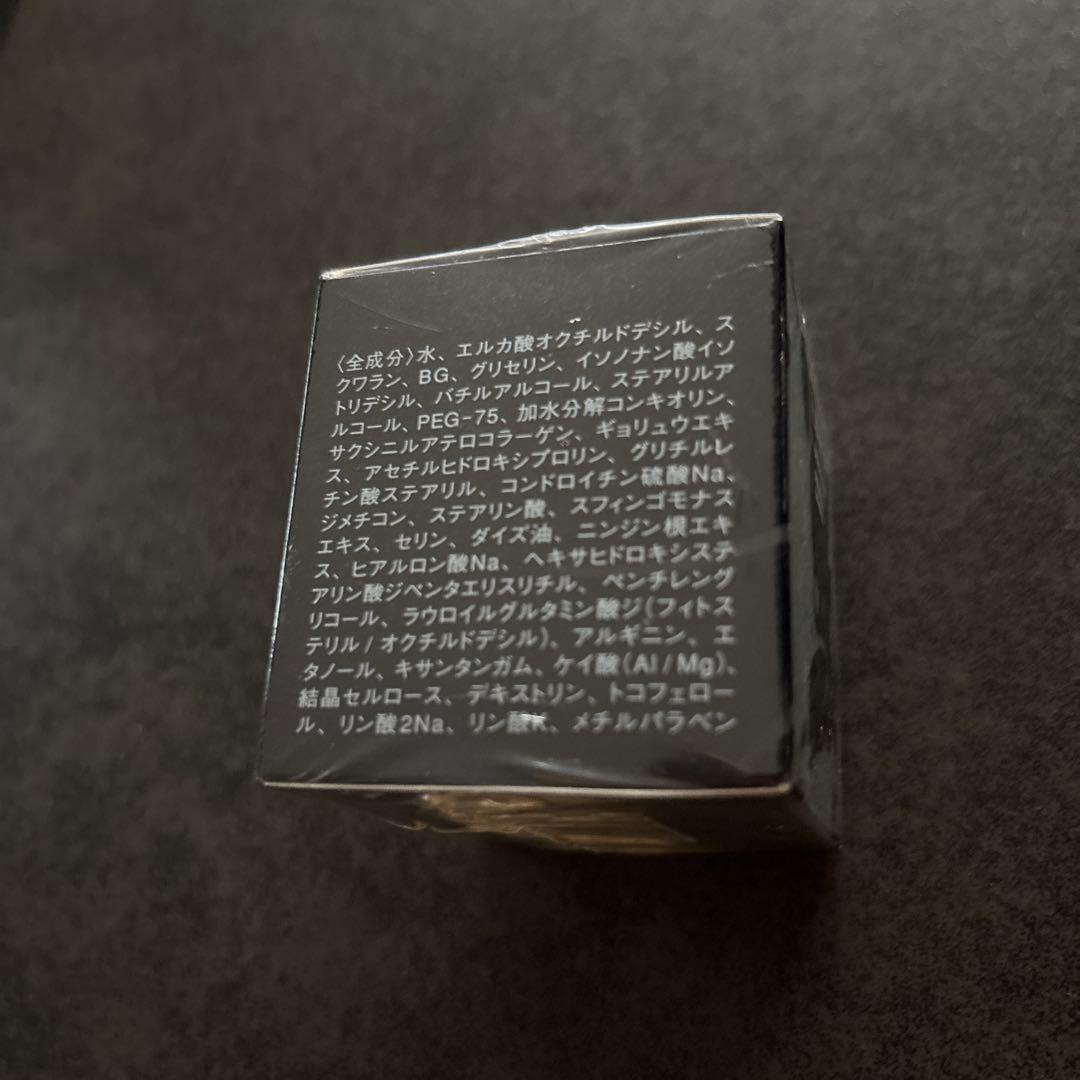 〈全成分〉水、エルカ酸オクチルドデシル、ス
クワラン、BG、グリセリン、イソノナン酸イソ
トリデシル、バチルアルコール、ステアリルア
ルコール、PEG-75、加水分解コンキオリン、
サクシニルアテロコラーゲン、ギョリュウエキ
ス、アセチルヒドロキシプロリン、グリチルレ
チン酸ステアリル、コンドロイチン硫酸Na、
ジメチコン、ステアリン酸、スフィンゴモナス
エキス、セリン、ダイズ油、ニンジン根エキ
ス、ヒアルロン酸Na、ヘキサヒドロキシステ
アリン酸ジペンタエリスリチル、ペンチレング
リコール、ラウロイルグルタミン酸ジ(フィトス
テリル/オクチルドデシル)、アルギニン、エ
タノール、キサンタンガム、ケイ酸(Al/Mg)、
結晶セルロース、デキストリン、トコフェロー
ル、リン酸2Na、リン酸K、メチルパラベン